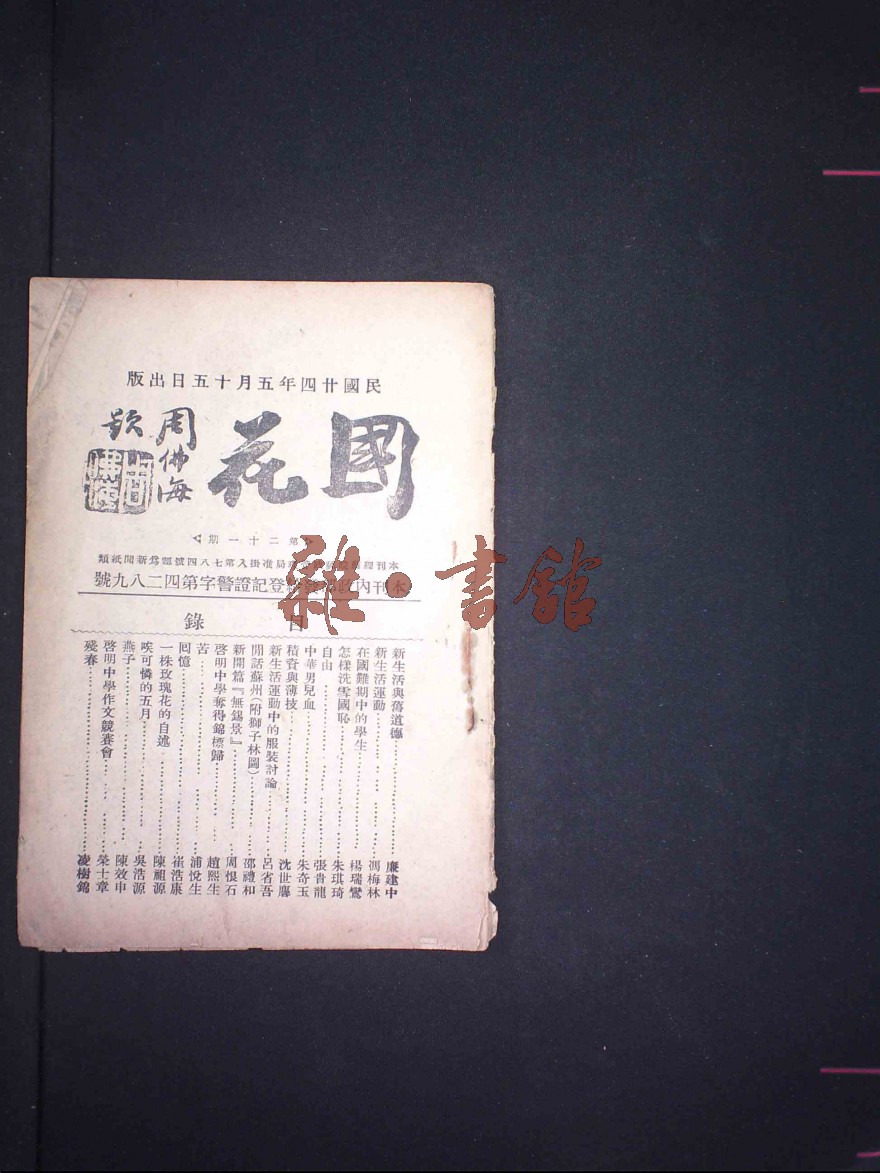 民國廿四年五月十五日出版
國花
周佛海
題
第二十一期
本刊 局准掛入第七八四號認爲新聞紙類
本刊內政 登記證警字第四二八九號
目錄
新生活與舊道德 廉建中
新生活運動 馮梅林
在國難期中的學生 楊瑞鸞
怎樣洗雪國恥 朱琪琦
自由 張貴龍
中華男兒血 朱奇玉
積資與薄技 沈世驤
新生活運動中的服裝討論 呂省吾
閒話蘇州(附獅子林圖) 邵禮和
新開篇『無錫景』 周恨石
啓明中學奪得錦標歸 趙熙生
苦 浦悅生
回憶 崔浩康
一株玫瑰花的自述 陳祖源
唉可憐的五月 吳浩源
燕子 陳效申
啓明中學作文競賽會 榮士章
殘春 凌樹錦
雜·書館